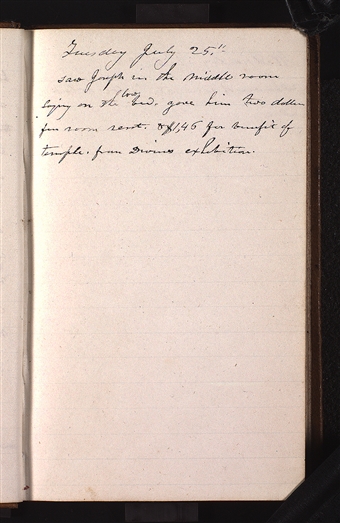 Tuesday July 25th
saw Joseph in the middle room
lying on the bed, gave him two dollars
for room rent. & $1,45 for benefit of
temple. from Divines exhibition.